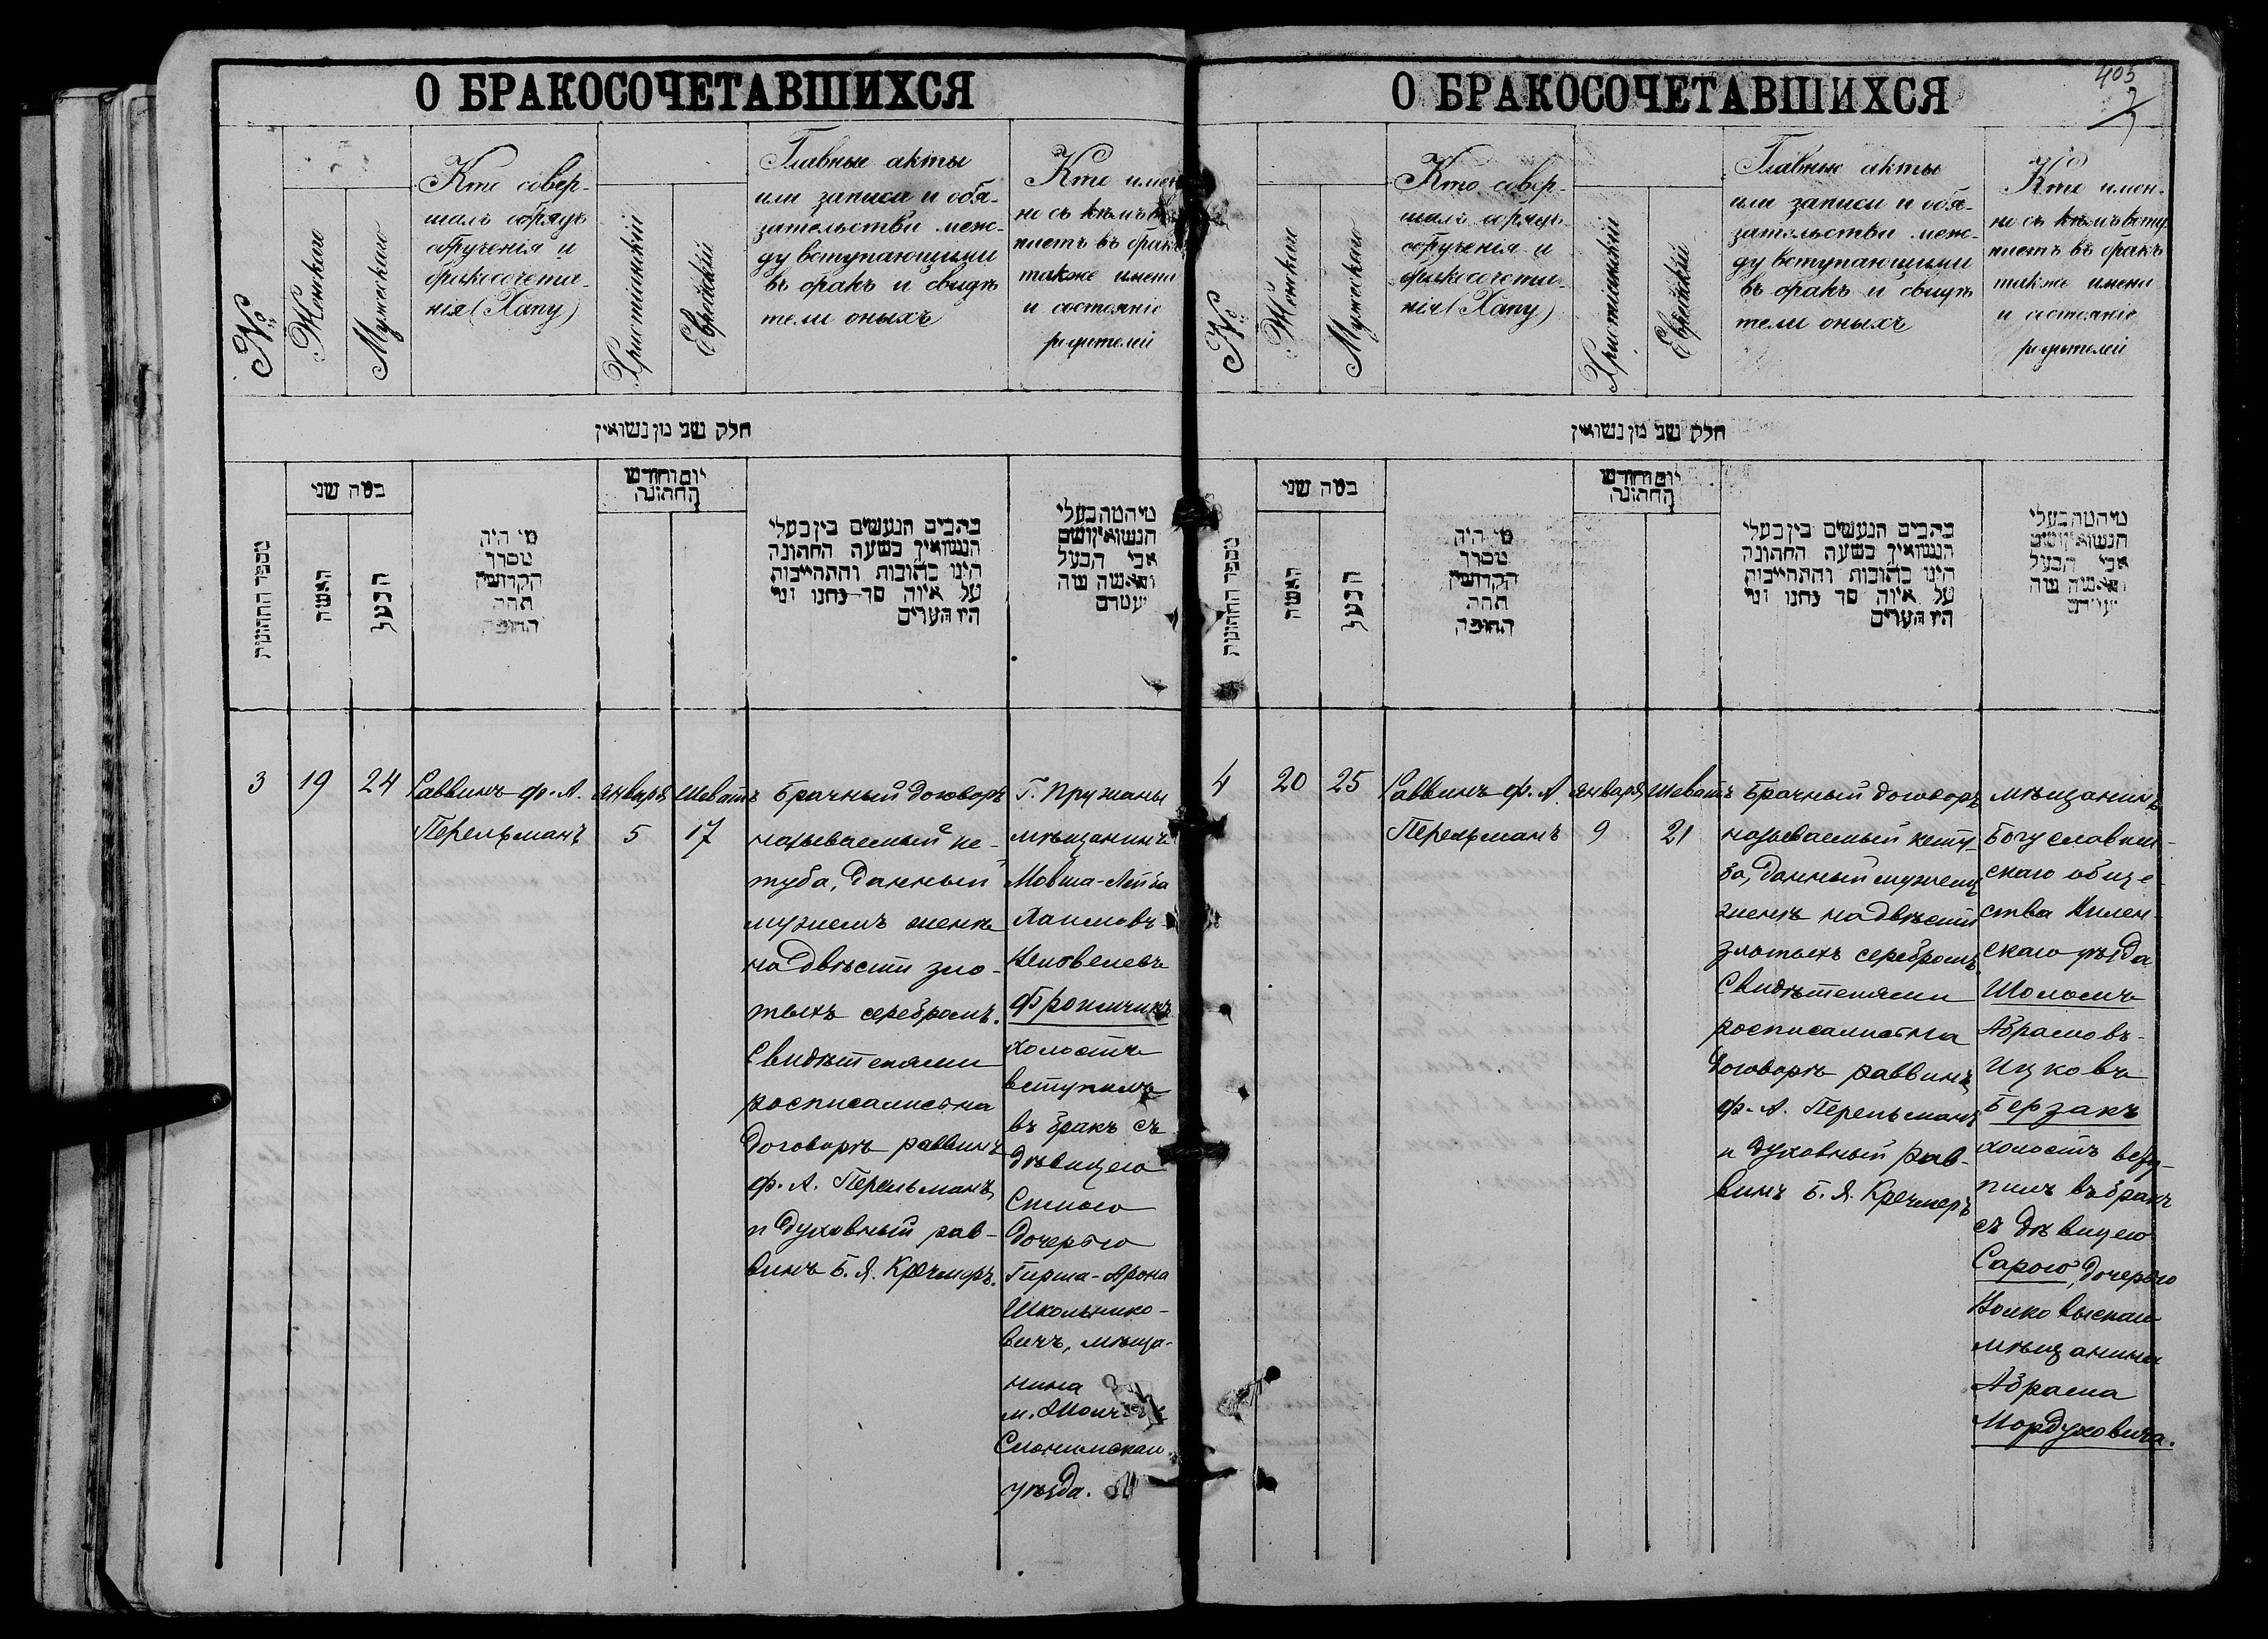 О БРАКОСОЧЕТАВШИХСЯ
№
Женскаго
Мужескаго
Кто совер-
шалъ обрядъ
обрученія и
бракосочета-
нія (Хапу)
Христіанскій
Еврейскій
Главные акты
или записи и обя-
зательства меж-
ду вступающими
въ бракъ и свидѣ
тели оныхъ
Кто имен
но съ кѣмъ в
паетъ въ бракъ
также имена
и состояніе
родителей
חלק שני מן נשואין
מספר החתונות
כמה שני
האשה
הבעל
מי היה
מסדר
הקדושין
תחת
החופה
יום וחודש
החתונה
כתבים הנעשים בין בעלי
הנשואין בשעה החתונה
היינו כתובות והתחייבות
על איזה סך נתנו ומי
היו העדים
מי המה בעלי
הנשואין ושם
אבי הבעל
והאשה מה
מעמדם
3
19
24
Раввинъ ф. А.
Перельманъ
Январь
5
Шеватъ
17
Брачный договоръ
называемый ке-
туба, данный
мужемъ женѣ
на двѣсти зло-
тыхъ серебромъ.
Свидѣтелями
росписались на
договорѣ раввинъ
ф. А. Перельманъ
и духовный рав-
винъ Б. Я. Кречмеръ.
Г. Пружаны
мѣщанинъ
Мовша-Лейба
Хаимовъ-
Фромчикъ
холостъ
вступилъ
въ бракъ съ
дѣвицею
дочерью
Гирша-Арона
Школьнико-
вичъ, мѣща-
нина
Слонимскаго
уѣзда.
О БРАКОСОЧЕТАВШИХСЯ
405
№
Женскаго
Мужескаго
Кто совер-
шалъ обрядъ
обрученія и
бракосочета-
нія (Хапу)
Христіанскій
Еврейскій
Главные акты
или записи и обя-
зательства меж-
ду вступающими
въ бракъ и свидѣ
тели оныхъ
Кто имен-
но съ кѣмъ всту
паетъ въ бракъ
также имена
и состояніе
родителей
חלק שני מן נשואין
מספר החתונות
כמה שני
האשה
הבעל
מי היה
מסדר
הקדושין
תחת
החופה
יום וחודש
החתונה
כתבים הנעשים בין בעלי
הנשואין בשעה החתונה
היינו כתובות והתחייבות
על איזה סך נתנו ומי
היו העדים
מי המה בעלי
הנשואין ושם
אבי הבעל
והאשה מה
מעמדם
4
20
25
Раввинъ ф. А.
Перельманъ
Январь
9
Шеватъ
21
Брачный договоръ
называемый кету-
ба, данный мужемъ
женѣ на двѣсти
злотыхъ серебромъ.
Свидѣтелями
росписались на
договорѣ раввинъ
ф. А. Перельманъ
и духовный рав-
винъ Б. Я. Кречмеръ
мѣщанинъ
Богуславин-
скаго обще-
ства Вилен-
скаго уѣзда
Шоломъ
Абрамовъ-
Ицковъ
Берзакъ
холостъ всту-
пилъ въ бракъ
съ дѣвицею
Сарою, дочерью
Волковыскаго
мѣщанина
Абрама
Мордуховича.